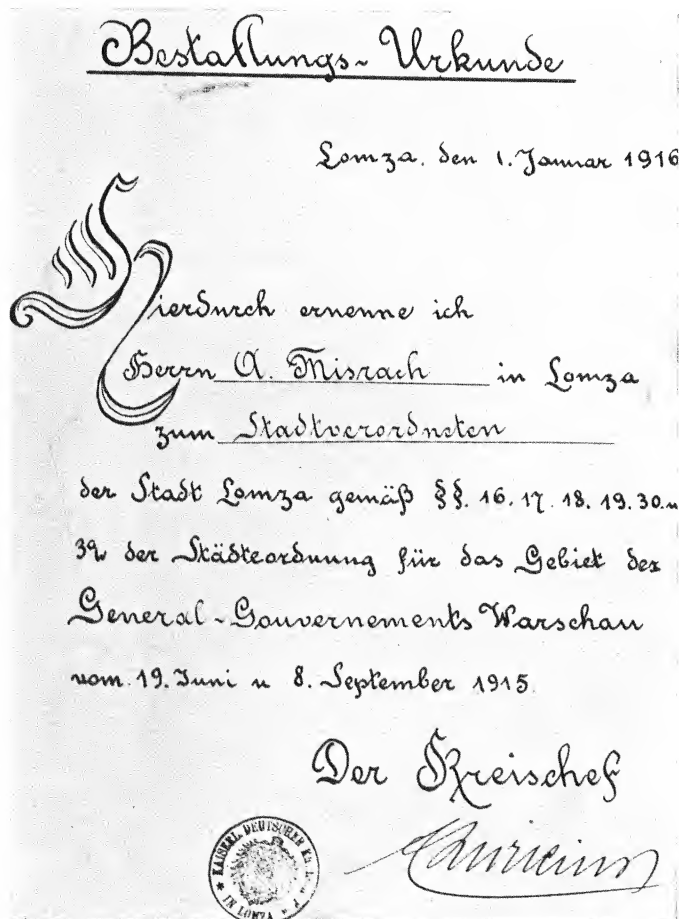 Bestallungs-Urkunde
Lomza. den 1. Januar 1916
Hierdurch ernenne ich
Herrn A. Misrach in Lomza
zum Stadtverordneten
der Stadt Lomza gemäß §§. 16. 17. 18. 19. 30. u
32 der Städteordnung für das Gebiet des
General-Gouvernements Warschau
vom 19. Juni u 8. September 1915.
Der Kreischef
KAISERL. DEUTSCHER
IN LOMZA